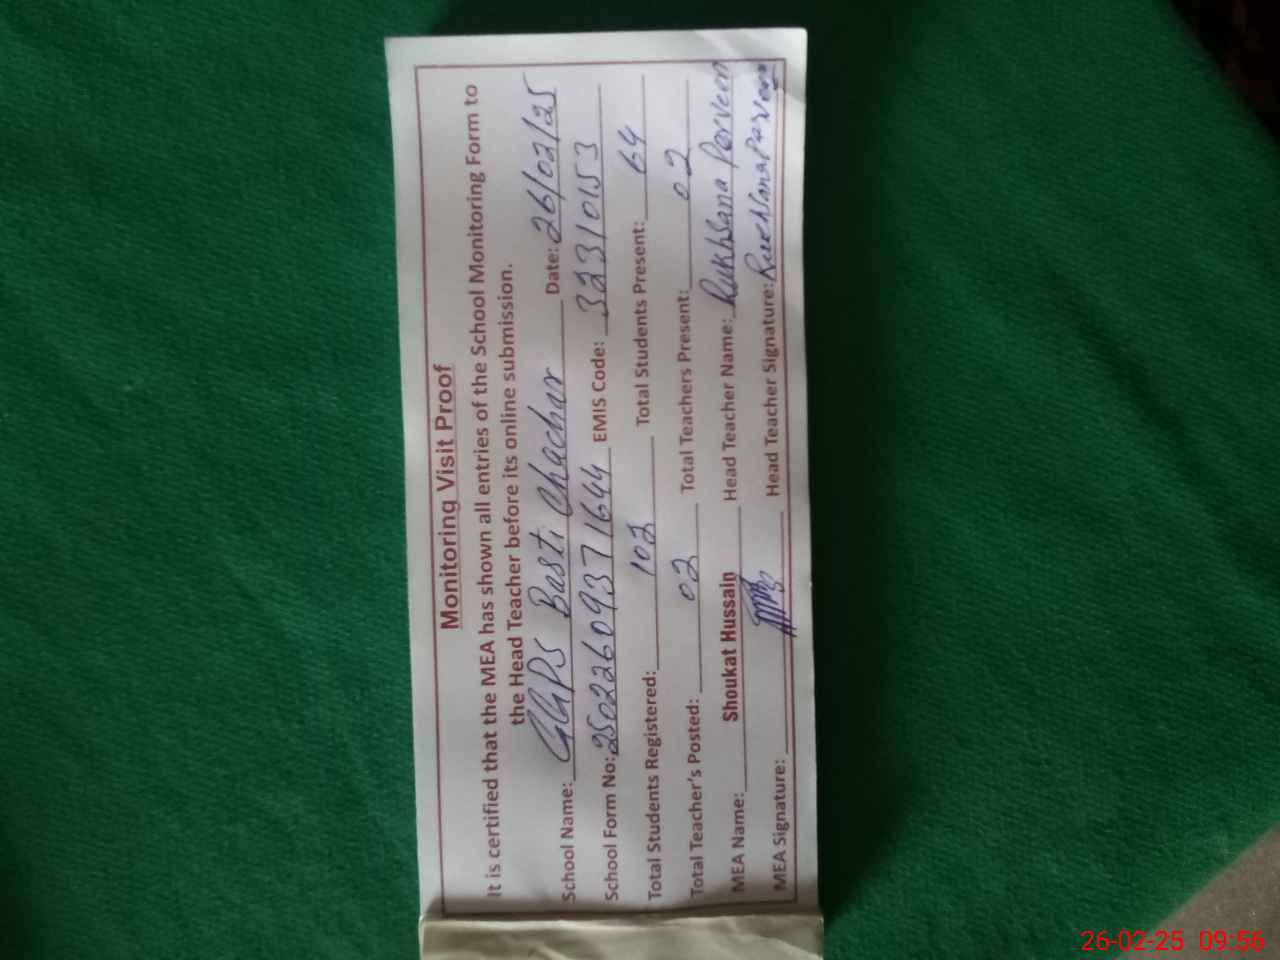 Monitoring Visit Proof
It is certified that the MEA has shown all entries of the School Monitoring Form to
the Head Teacher before its online submission.
School Name: GGPS Basti Chachar Date: 26/02/25
School Form No: 25022609371644 EMIS Code: 32310153
Total Students Registered: 102 Total Students Present: 64
Total Teacher's Posted: 02 Total Teachers Present: 02
MEA Name: Shoukat Hussain Head Teacher Name: Rukhsana Parveen
MEA Signature: Head Teacher Signature: Rukhsana Parveen
26-02-25 09:56